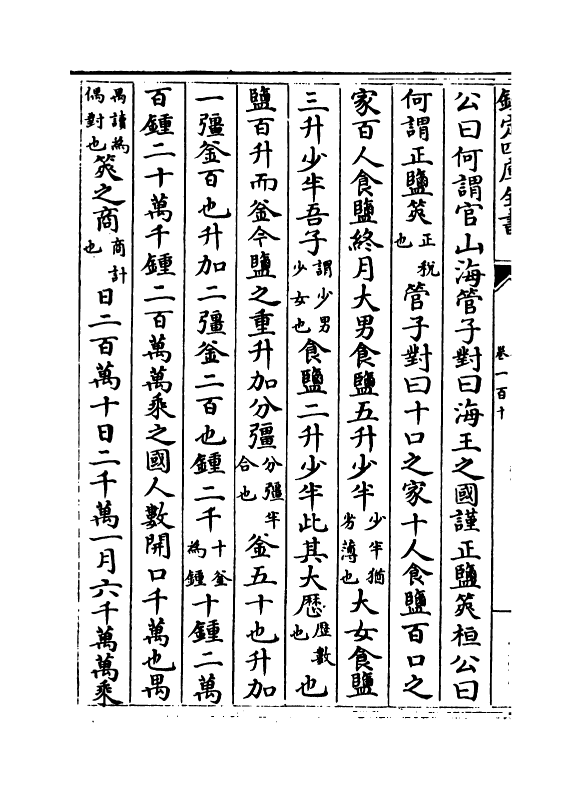 欽定四庫全書
卷一百十
公曰何謂官山海管子對曰海王之國謹正鹽筴桓公曰
何謂正鹽筴正稅也管子對曰十口之家十人食鹽百口之
家百人食鹽終月大男食鹽五升少半少半猶劣薄也大女食鹽
三升少半吾子謂少男少女也食鹽二升少半此其大厯厯數也也
鹽百升而釜今鹽之重升加分彊分彊半合也釜五十也升加
一彊釜百也升加二彊釜二百也鍾二千十釜為鍾十鍾二萬
百鍾二十萬千鍾二百萬萬乘之國人數開口千萬也禺
禺讀為偶偶對也筴之商商計也日二百萬十日二千萬一月六千萬萬乘